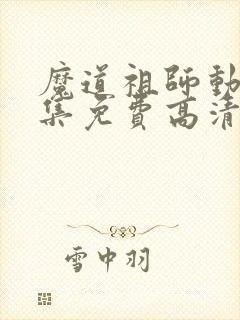 魔道祖师動
集免费高清
雪中羽